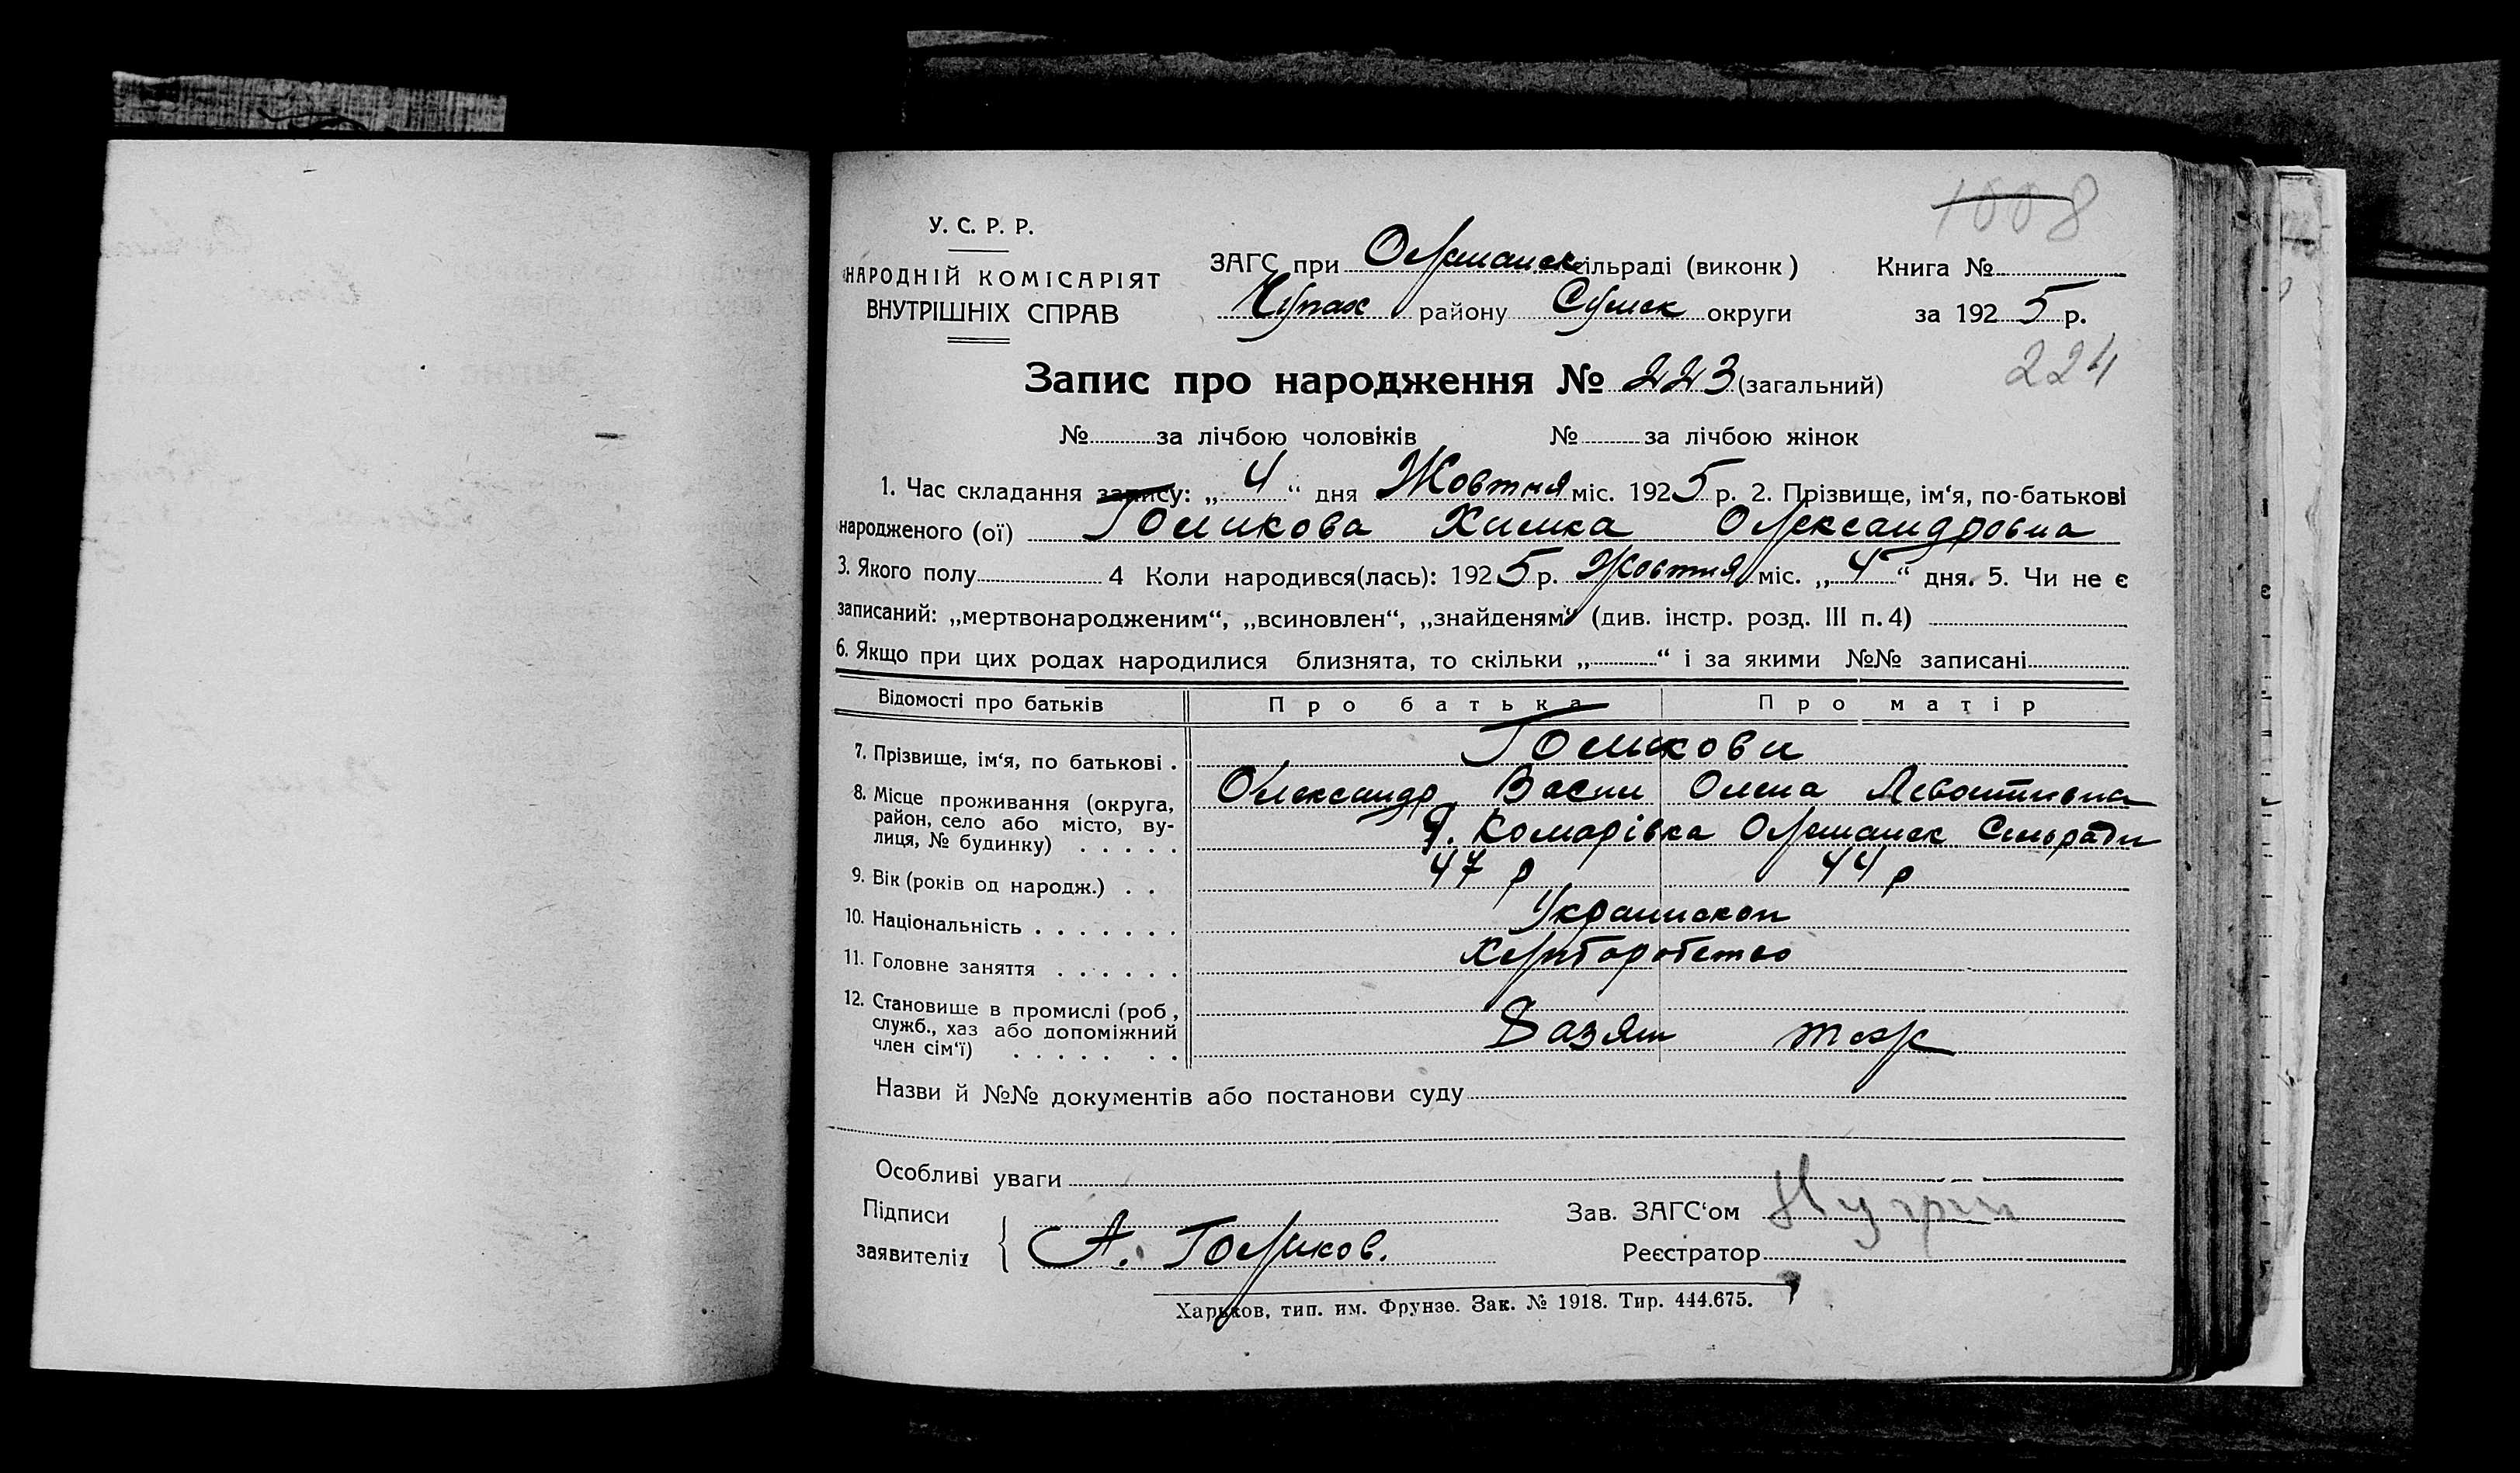 1008
У. С. Р. Р.
НАРОДНІЙ КОМІСАРІЯТ
ВНУТРІШНІХ СПРАВ
ЗАГС при Ольшанск сільраді (виконк)
Чупах району Сумск округи
Книга №
за 1925 р.
224
Запис про народження № 223 (загальний)
№ за лічбою чоловіків № за лічбою жінок
1. Час складання запису: „4“ дня Жовтня міс. 1925 р. 2. Прізвище, ім‘я, по-батькові
народженого (ої) Голикова Химка Олександровна
3. Якого полу 4 Коли народився(лась): 1925 р. Жовтня міс. „4“ дня. 5. Чи не є
записаний: „мертвонародженим“, „всиновлен“, „знайденям“ (див. інстр. розд. III п. 4)
6. Якщо при цих родах народилися близнята, то скільки „ “ і за якими №№ записані
Відомості про батьків Про батька Про матір
7. Прізвище, ім‘я, по батькові . Голикови
Олександр Васил Олена
8. Місце проживання (округа,
район, село або місто, ву-
лиця, № будинку) . . . . . Комарівка Ольшанск Сильради
9. Вік (років од народж.) . . 47 р 44 р
10. Національність . . . . . . .
11. Головне заняття . . . . . . Хліборобство
12. Становище в промислі (роб,
служб., хаз або допоміжний
член сім‘ї) . . . . . . .
Назви й №№ документів або постанови суду
Особливі уваги
Підписи
заявителів
А. Голиков.
Зав. ЗАГС‘ом
Реєстратор
Харьков, тип. им. Фрунзе. Зак. № 1918. Тир. 444.675.